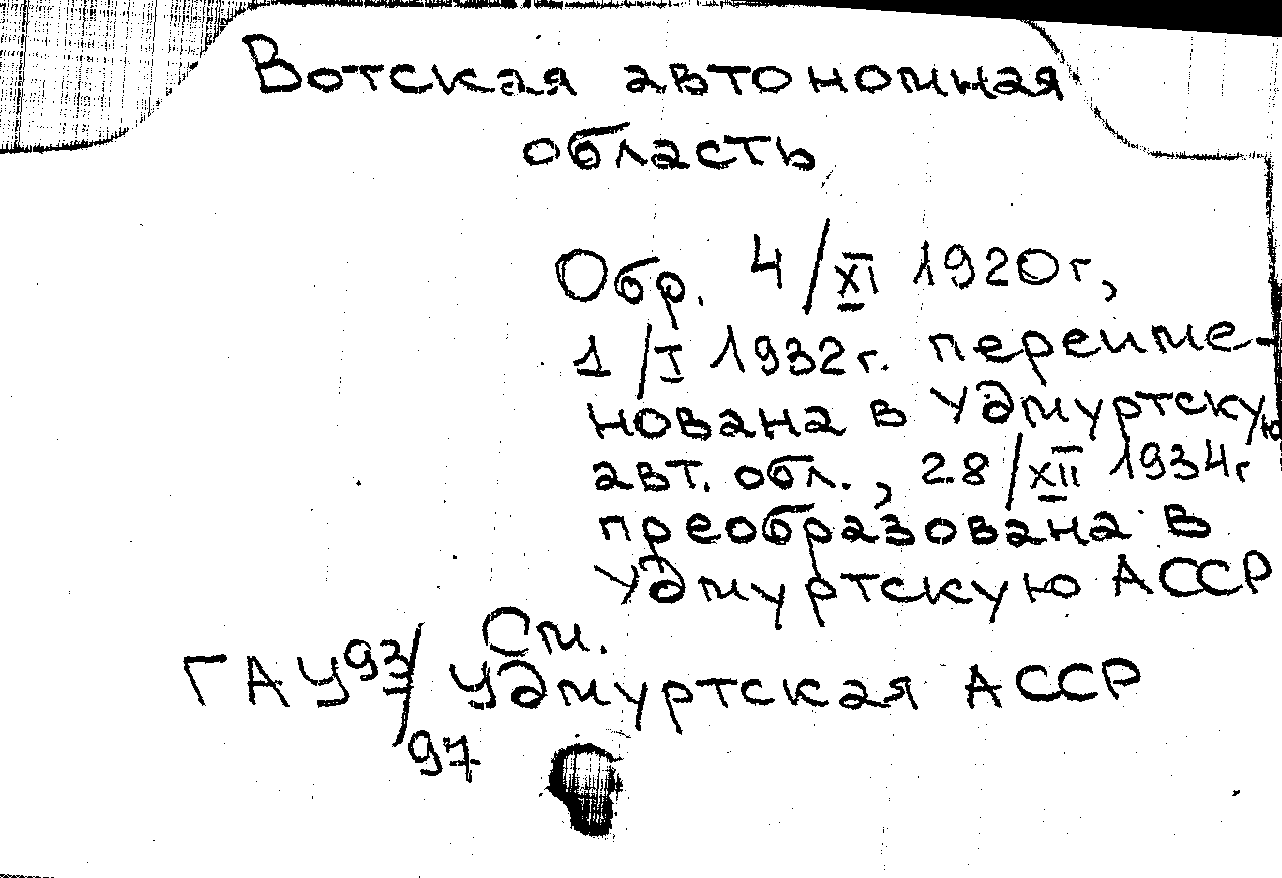 Вотская автономная
область
Обр. 4/XI 1920г,
1/I 1932г. переиме-
нована в Удмуртскую
авт. обл., 28/XII 1934г
преобразована в
Удмуртскую АССР
См.
ГАУ 93/97 Удмуртская АССР